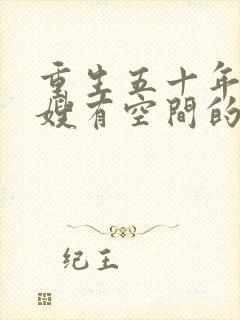 重生五十年
嫂有空間的
纪王